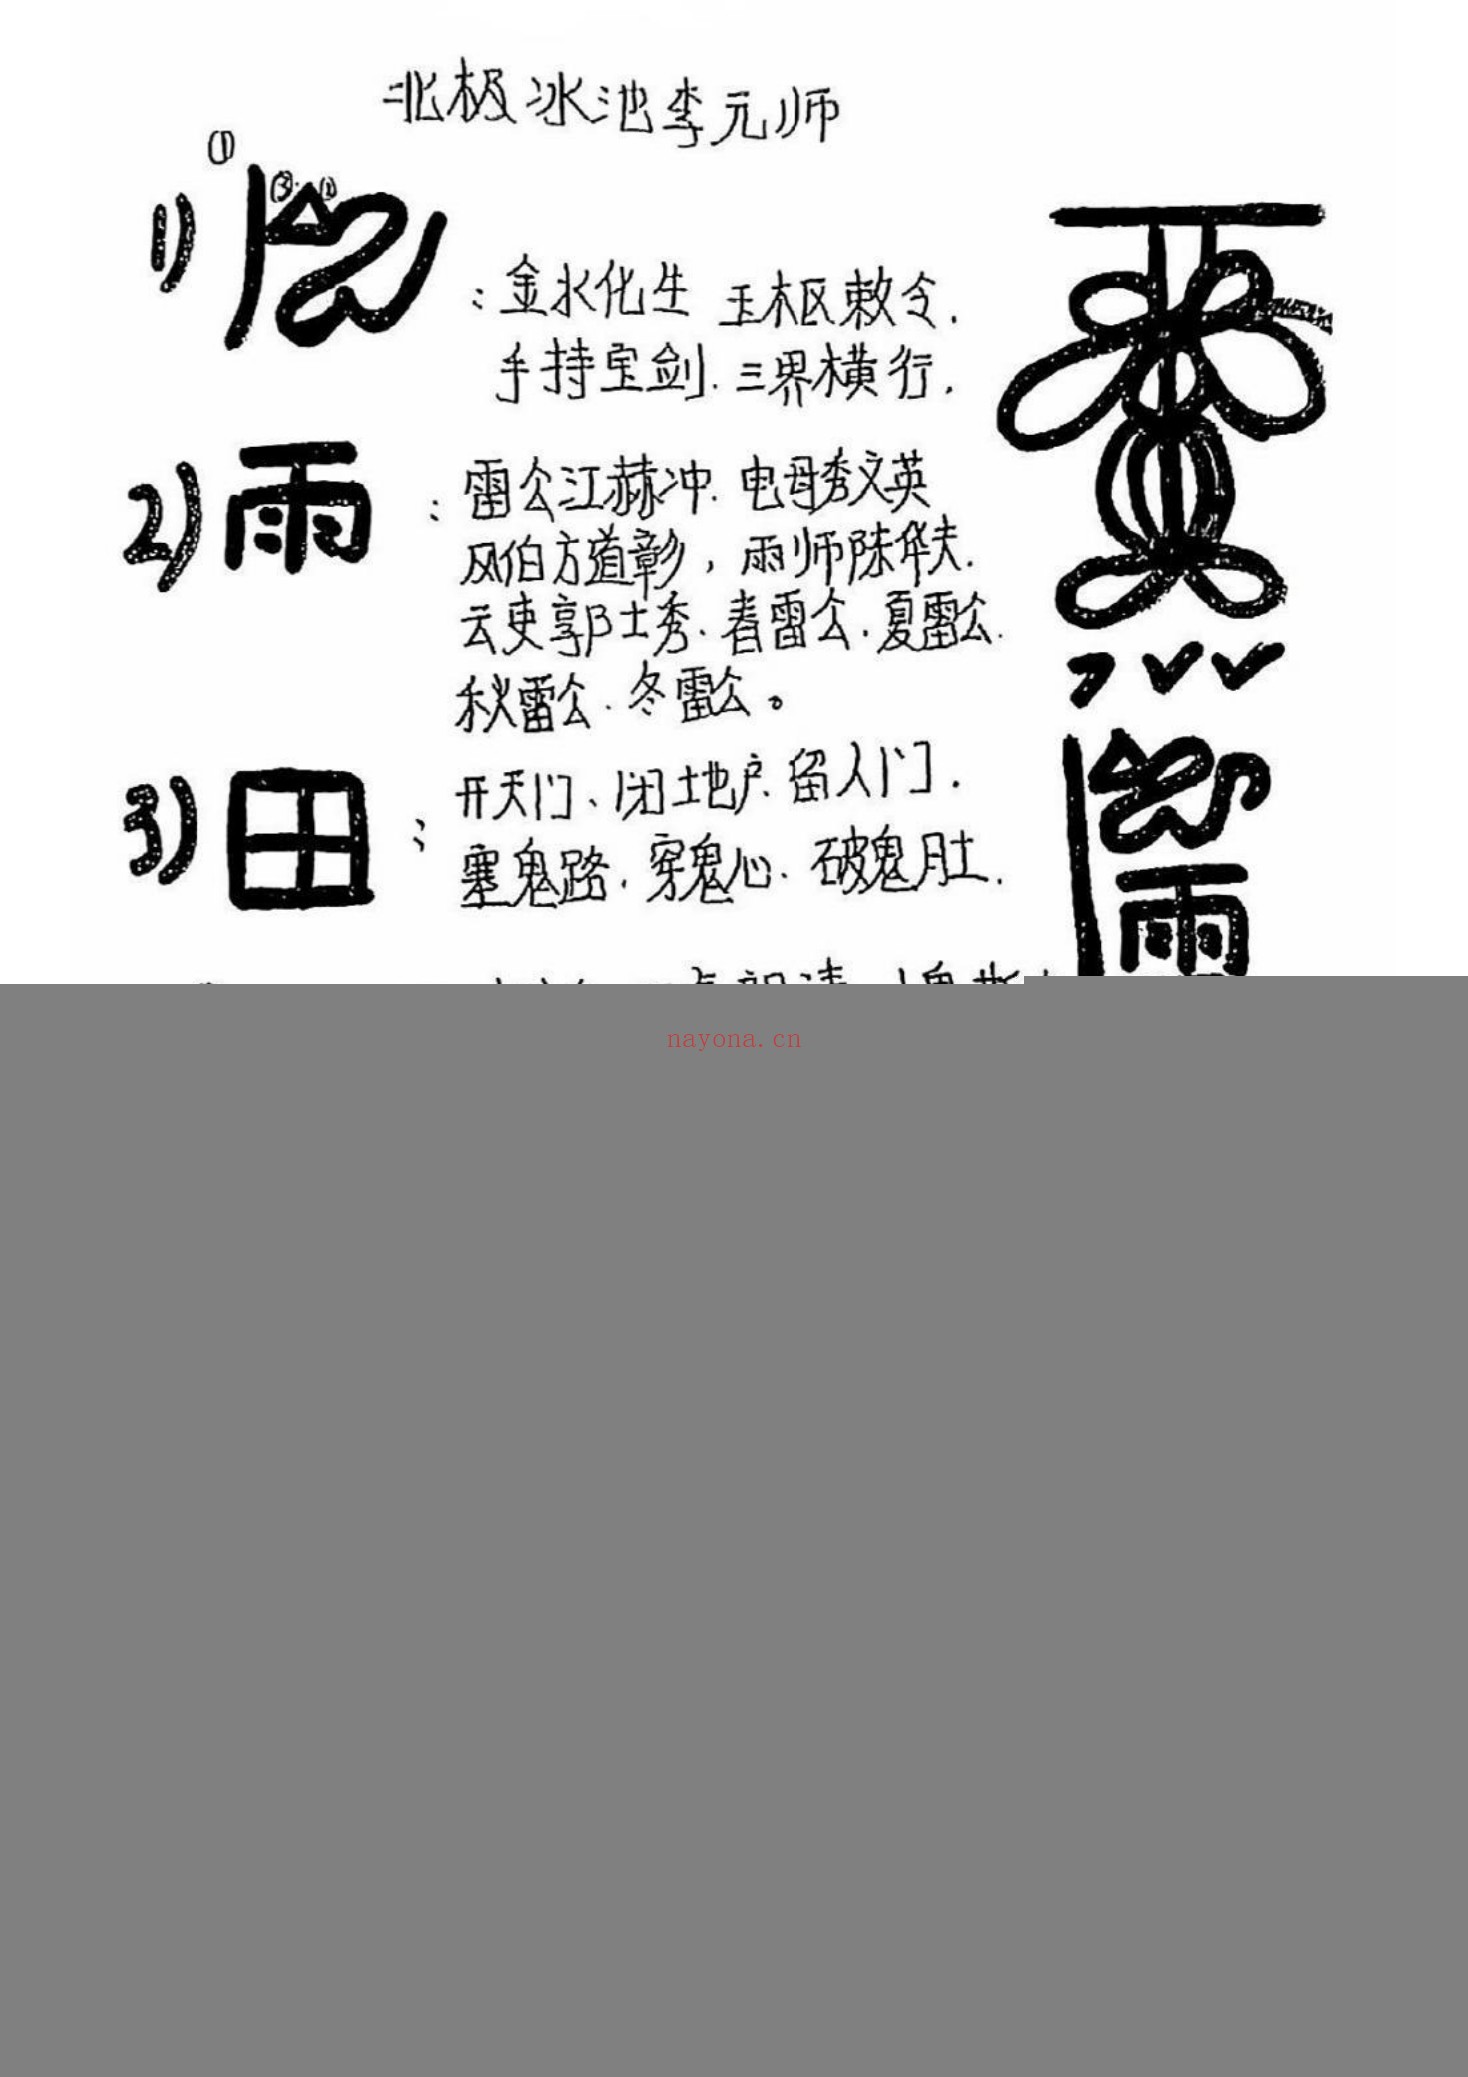 北极冰池李元师
①
1)
③ ②
：金水化生 玉枢敕令．
手持宝剑．三界横行．
2) 雨 ：雷公江赫冲．电母秀文英
风伯方道彰，雨师陈华夫．
云吏郭士秀．春雷公．夏雷公．
秋雷公．冬雷公。
3) 田 ；开天门、闭地户．留人门．
塞鬼路．穿鬼心．破鬼肚．
雨
nayona.cn